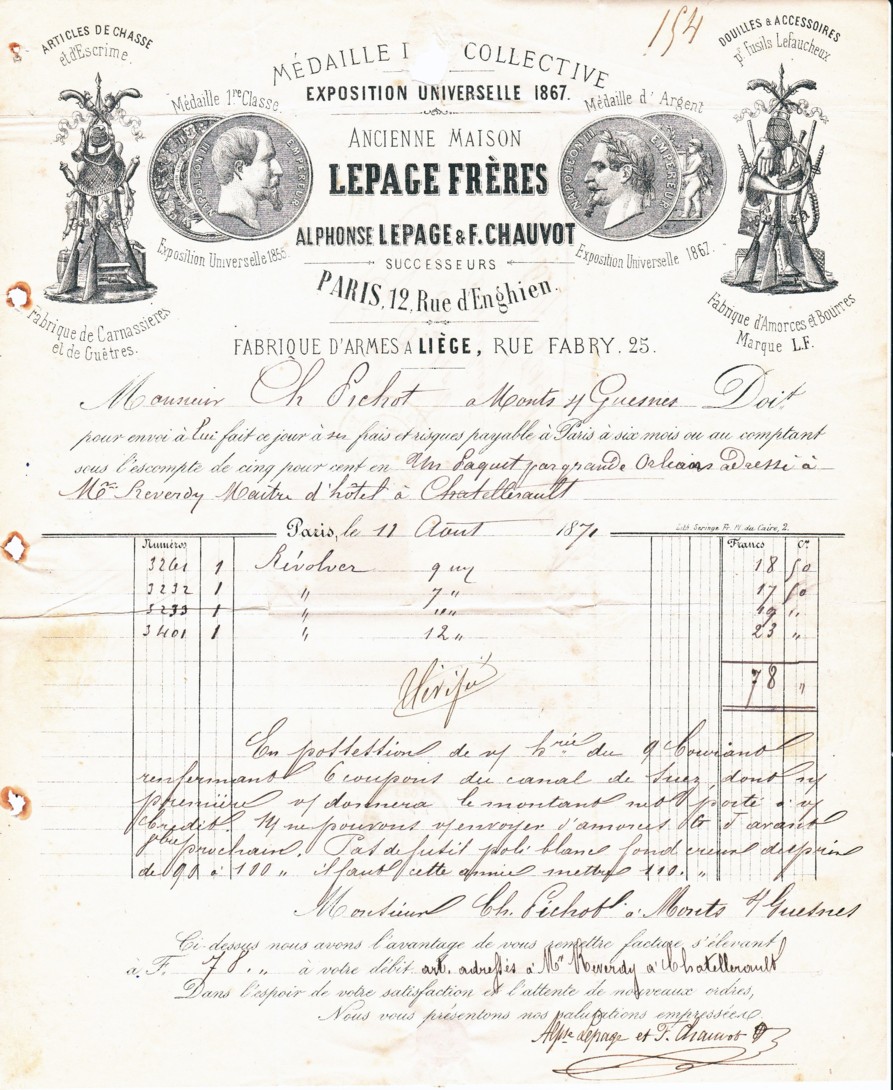 154
ARTICLES DE CHASSE
et d'Escrime.
DOUILLES & ACCESSOIRES
pr. fusils Lefaucheux
MÉDAILLE COLLECTIVE
EXPOSITION UNIVERSELLE 1867.
Médaille 1re Classe.
Médaille d'Argent
NAPOLEON III EMPEREUR
NAPOLEON III EMPEREUR
ANCIENNE MAISON
LEPAGE FRÈRES
ALPHONSE LEPAGE & F. CHAUVOT
Exposition Universelle 1855.
Exposition Universelle 1867.
SUCCESSEURS
PARIS, 12, Rue d'Enghien.
Fabrique de Carnassières
et de Guêtres.
Fabrique d'Amorces et Bourres
Marque L.F.
FABRIQUE D'ARMES A LIÈGE, RUE FABRY. 25.
Monsieur Ch Pichot a Monts s/ Guesnes Doit
pour envoi à Lui fait ce jour à ses frais et risques payable à Paris à six mois ou au comptant
sous l'escompte de cinq pour cent en Un Paquet par grande Orléans adressé à
Mr Reverdy Maitre d'hôtel à Chatellerault
Paris, le 11 Aout 1871
Lith. Seringe Fr. Pl. du Caire, 2.
Numéros Francs Cs
3261 1 Révolver 9 my 18 50
3232 1 " 7 " 17 50
3233 1 " " " 19 "
3401 1 " 12 " 23 "
78 "
Vérifié
En possession de v/ hrée du 9 Courant
renfermant 6 coupons du canal de Suez, dont n/
première v/ donnera le montant net porté à v/
Crédit. N/ ne pouvons v/ envoyer d'amorces G avant
prochain. Pas de fusil poli blanc fond creux du prix
de 90 à 100 " il faut cette année mettre 110 "
Monsieur Ch. Pichot à Monts s/ Guesnes
Ci-dessus nous avons l'avantage de vous remettre facture, s'élevant
à F. 78. " à votre débit art. adressés à Mr Reverdy à Chatellerault
Dans l'espoir de votre satisfaction et l'attente de nouveaux ordres,
Nous vous présentons nos salutations empressées.
Alphse Lepage et F. Chauvot